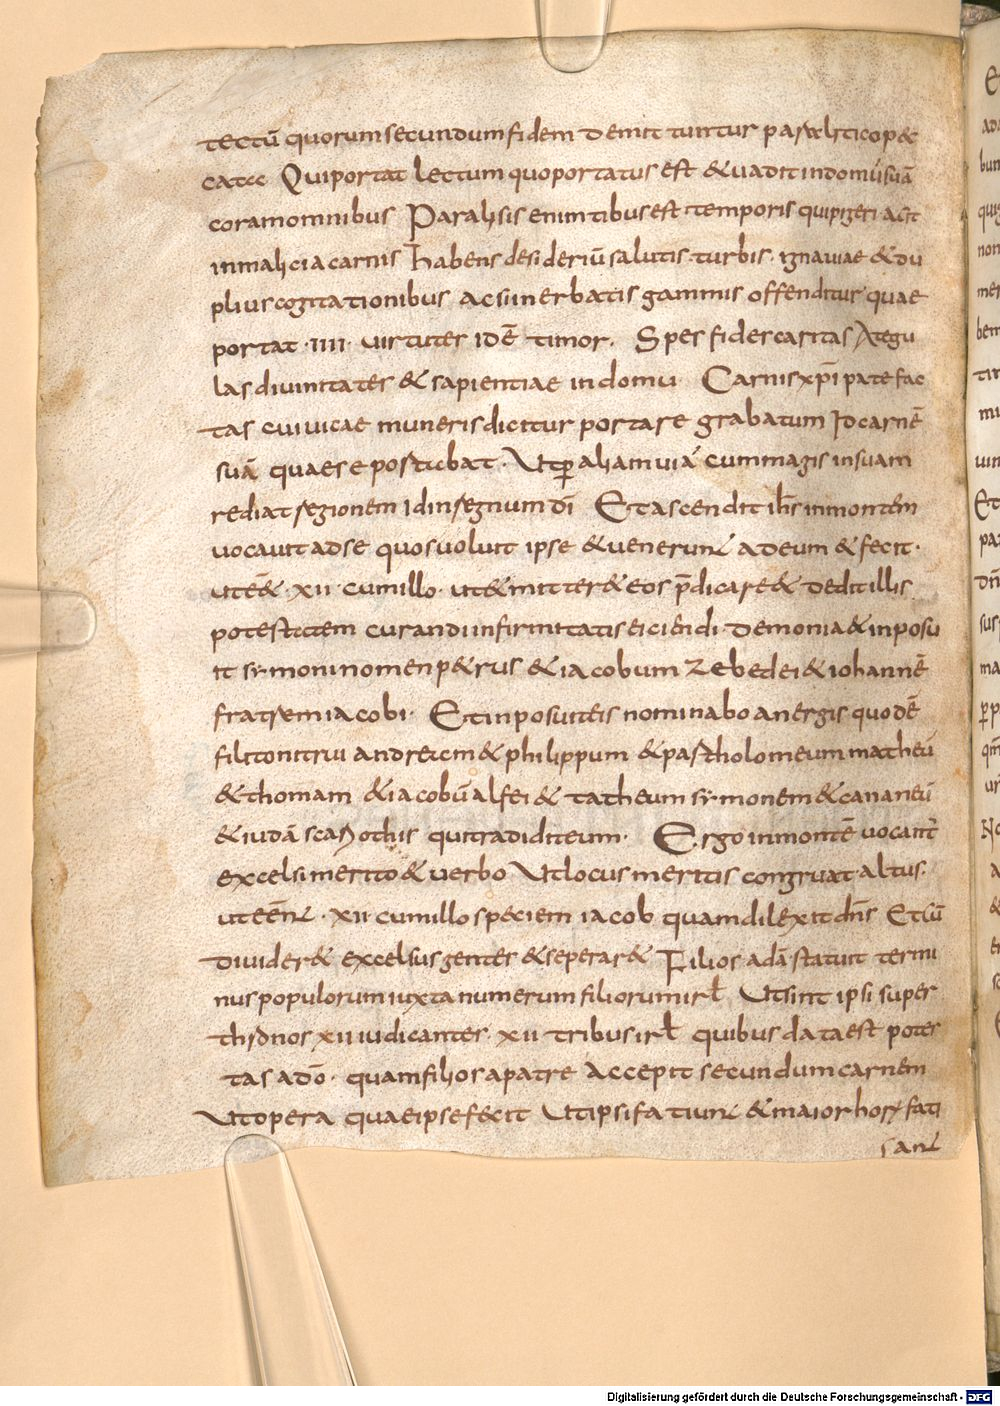 tectū quorum secundum fidem demittuntur paralitico pec
cata Qui portat lectum quo portatus est & uadit in domū suā
coram omnibus Paralisis enim tibus est temporis qui pigeri acit
in malicia carnis habens desideriū salutis · turbis · ignauiae & du
plius cogitationibus ac si inerbatis gammis offenditur quae
portat · IIII · uirtutes idē timor . Spes fides caritas Ategu
las diuinitates & sapientiae in domu Carnis xp̄i patefac
tas cui uicae muneris dicitur portare grabatum Id carnē
suā quaere posticbat · Ut per aliam uiā cum magis in suam
rediat regionem Id in regnum dī Et ascendit ihs in montem
uocauit ad se quos uoluit ipse & uenerunt ad eum & fecit ·
ut eēt · xii · cum illo · ut & mitter& eos p̄dicare & dedit illis
potestatem curandi infirmitatis eiciendi · demonia & inposu
it symoni nomen p&rus & iacobum zebedei & iohannē
fratrem iacobi · Et inposuit eis nomina boanergis quod ē
filii tonitrui andreiem & philippum & partholomeum matheū
& thomam & iacobū alfei & tatheum symonem & cananeū
& iudā scariothis qui tradidit eum · Ergo in montē uocant̄
excelsi merito & uerbo Ut locus meritis congruat altus ·
ut eēnt · xii cum illo speciem iacob quam dilexit dn̄s Et cū
diuider& excelsus gentes & seperar& Filios adā statuit termi
nus populorum iuxta numerum filiorum irl̄ Ut sint ipsi super
thronos xii iudicantes · xii tribus irl̄ quibus data est potes
tas a dō · quam filios a patre accepit secundum carnem
Ut opera quae ipse fecit Ut ipsi fatiunt & maior horū fati
sant
Digitalisierung gefördert durch die Deutsche Forschungsgemeinschaft - DFG